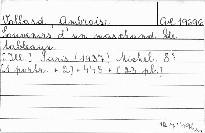 Vollard, Ambroise. Ac 19696
Souvenirs d'un marchand de
tableaux.
(Ill.) Paris (1937) Michel. 8°
(1 portr. + 2) + 445 + (23 pl.)